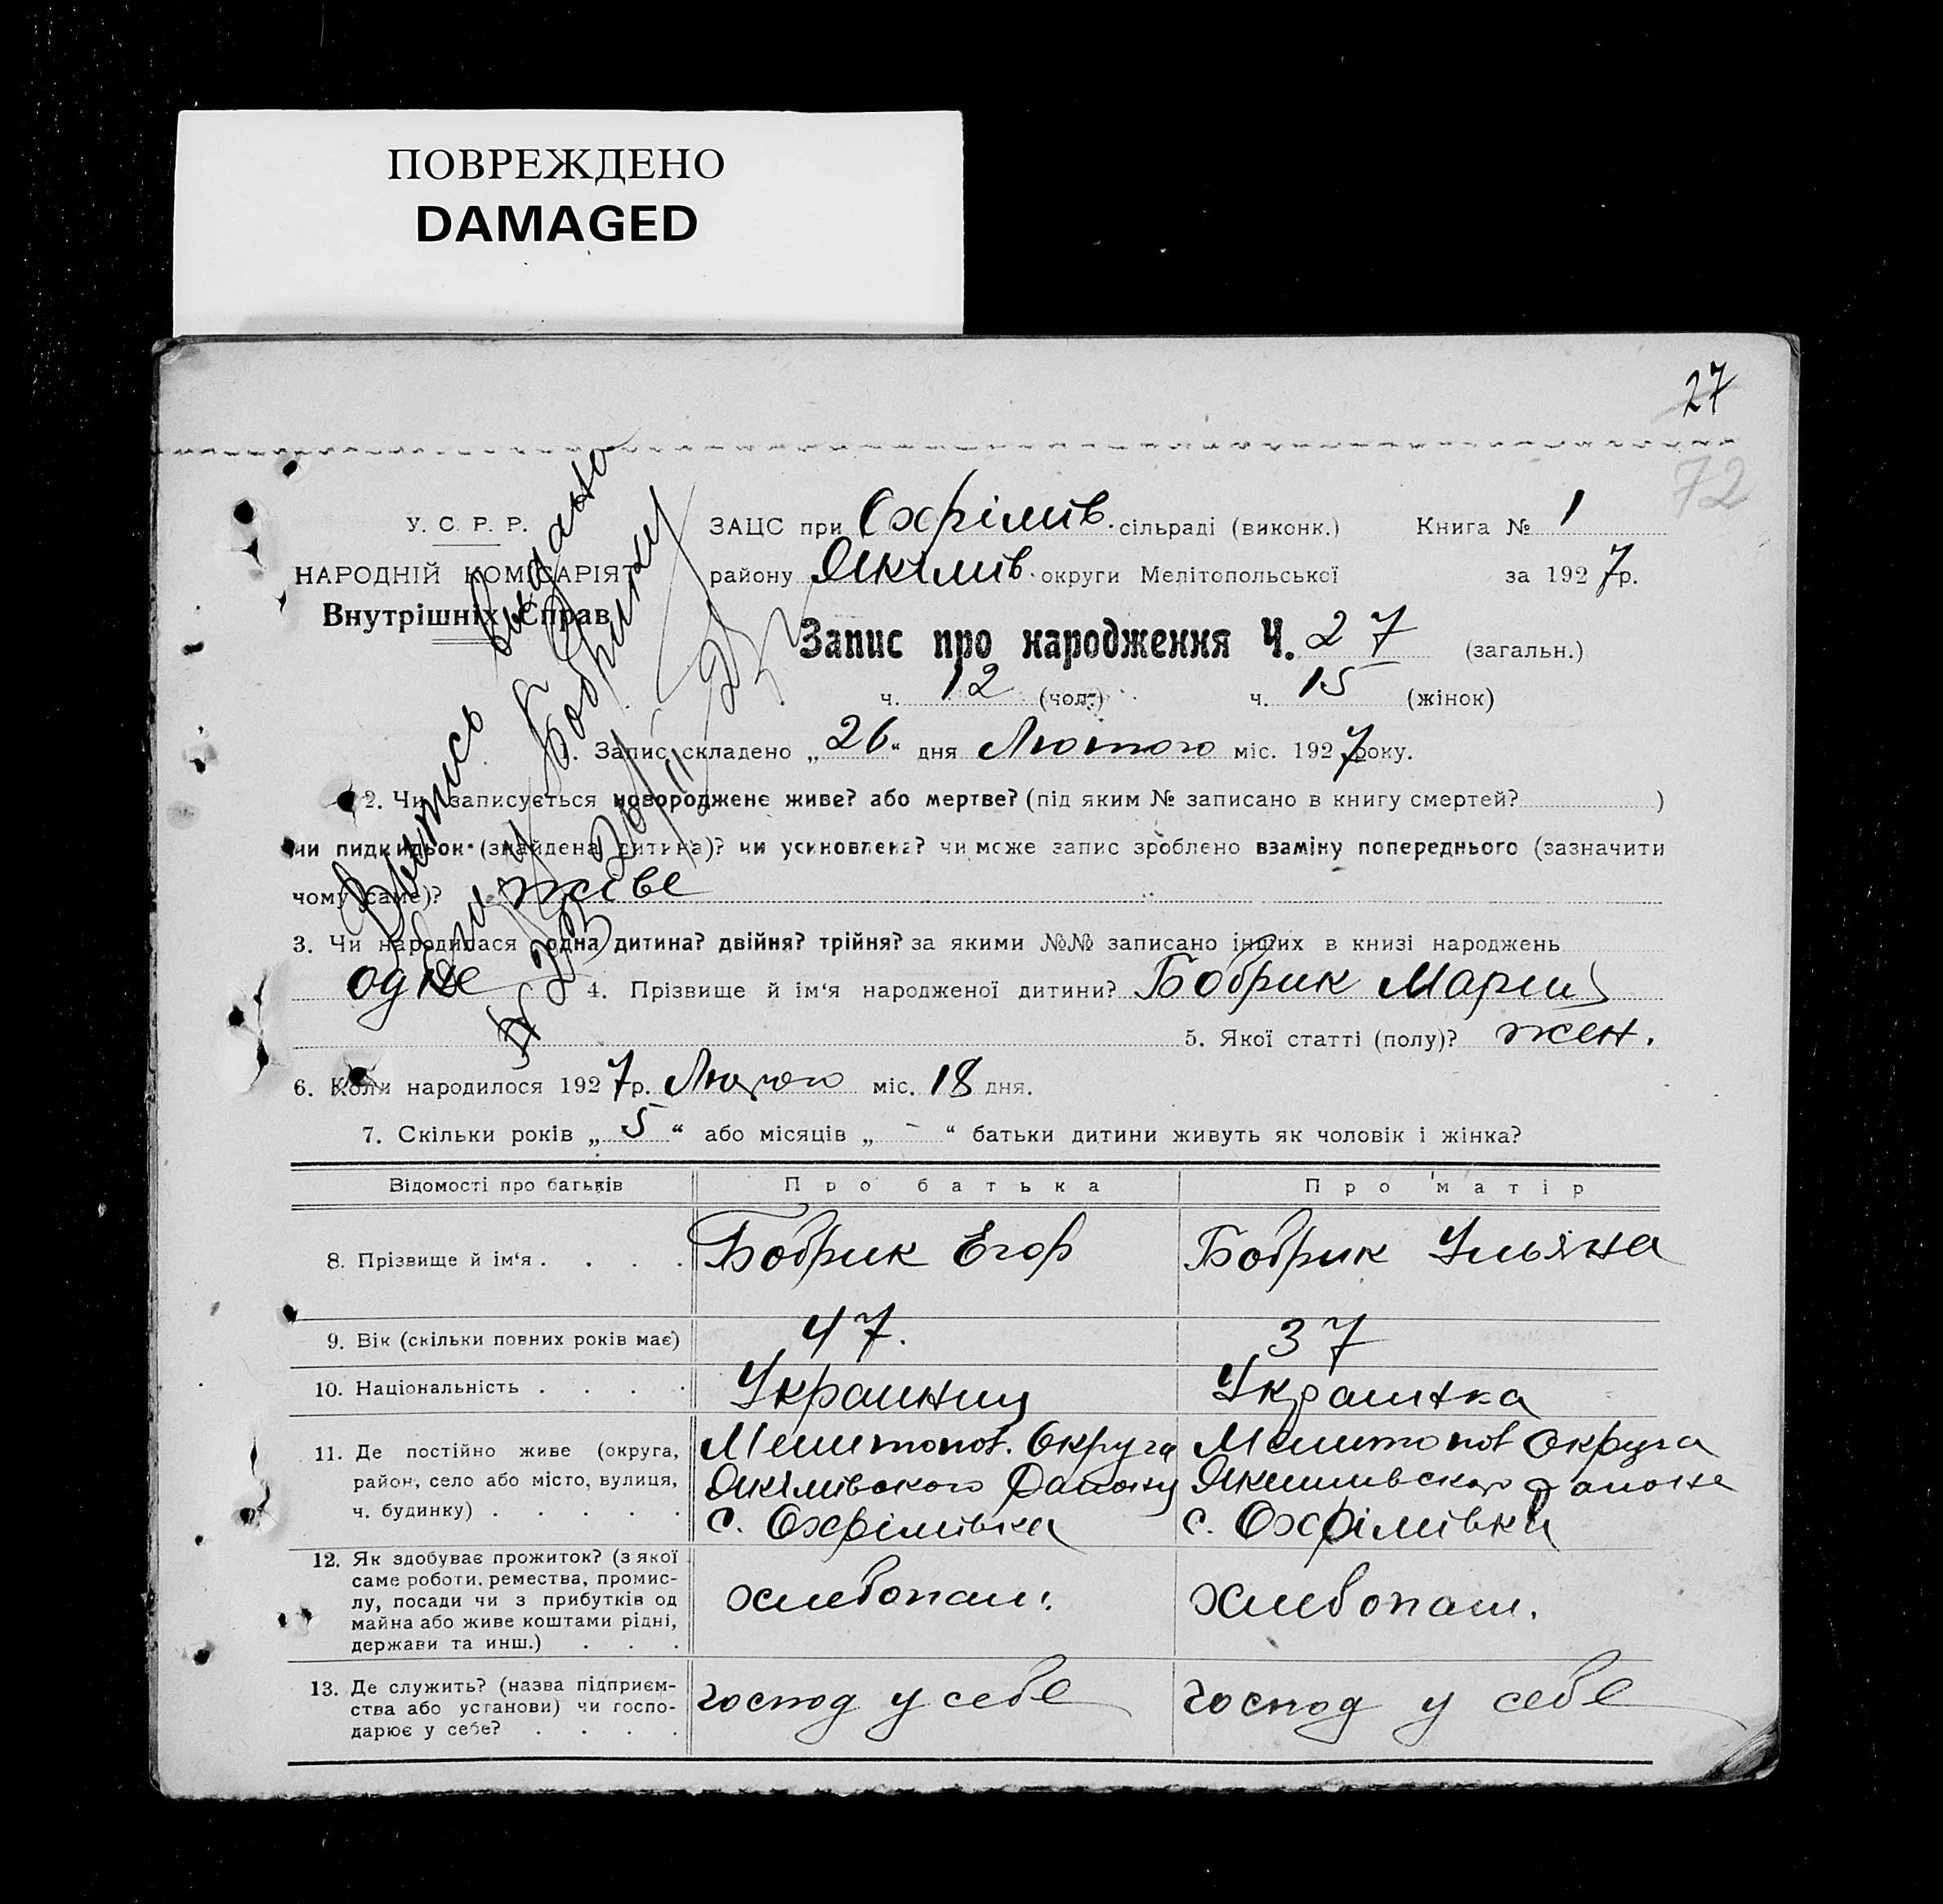 ПОВРЕЖДЕНО
DAMAGED
27
72
У. С. Р. Р.
НАРОДНІЙ КОМІСАРІЯТ
Внутрішніх Справ
ЗАЦС при Охрімів. сільраді (виконк.) Книга № 1
району Якімів. округи Мелітопольської за 1927 р.
Запис про народження Ч. 27 (загальн.)
ч. 12 (чол.) ч. 15 (жінок)
Выпись выдана
Бобрику
1. Запис складено „26“ дня Лютого міс. 1927 року.
2. Чи записується новороджене живе? або мертве? (під яким № записано в книгу смертей? )
чи пидкидьок (знайдена дитина)? чи усиновлена? чи може запис зроблено взаміну попереднього (зазначити
чому саме)? живе
3. Чи народилася одна дитина? двійня? трійня? за якими №№ записано інших в книзі народжень
одне 4. Прізвище й ім‘я народженої дитини? Бобрик Марии
5. Якої статті (полу)? жен.
6. Коли народилося 1927 р. Лютого міс. 18 дня.
7. Скільки років „5“ або місяців „-“ батьки дитини живуть як чоловік і жінка?
Відомості про батьків Про батька Про матір
8. Прізвище й ім‘я . . . . Бобрик Егор Бобрик Ульяна
9. Вік (скільки повних років має) 47. 37
10. Національність . . . . Украинец Украинка
11. Де постійно живе (округа, район, село або місто, вулиця, ч. будинку) . . . . .
Мелитопол. Округа Мелитопол Округа
Якімівского Району Якимивского района
с. Охрімівка с. Охрімівка
12. Як здобуває прожиток? (з якої саме роботи, ремества, промислу, посади чи з прибутків од майна або живе коштами рідні, держави та инш.) . . .
хлебопаш. хлебопаш.
13. Де служить? (назва підприємства або установи) чи господарює у себе? . . . .
господ у себе господ у себе